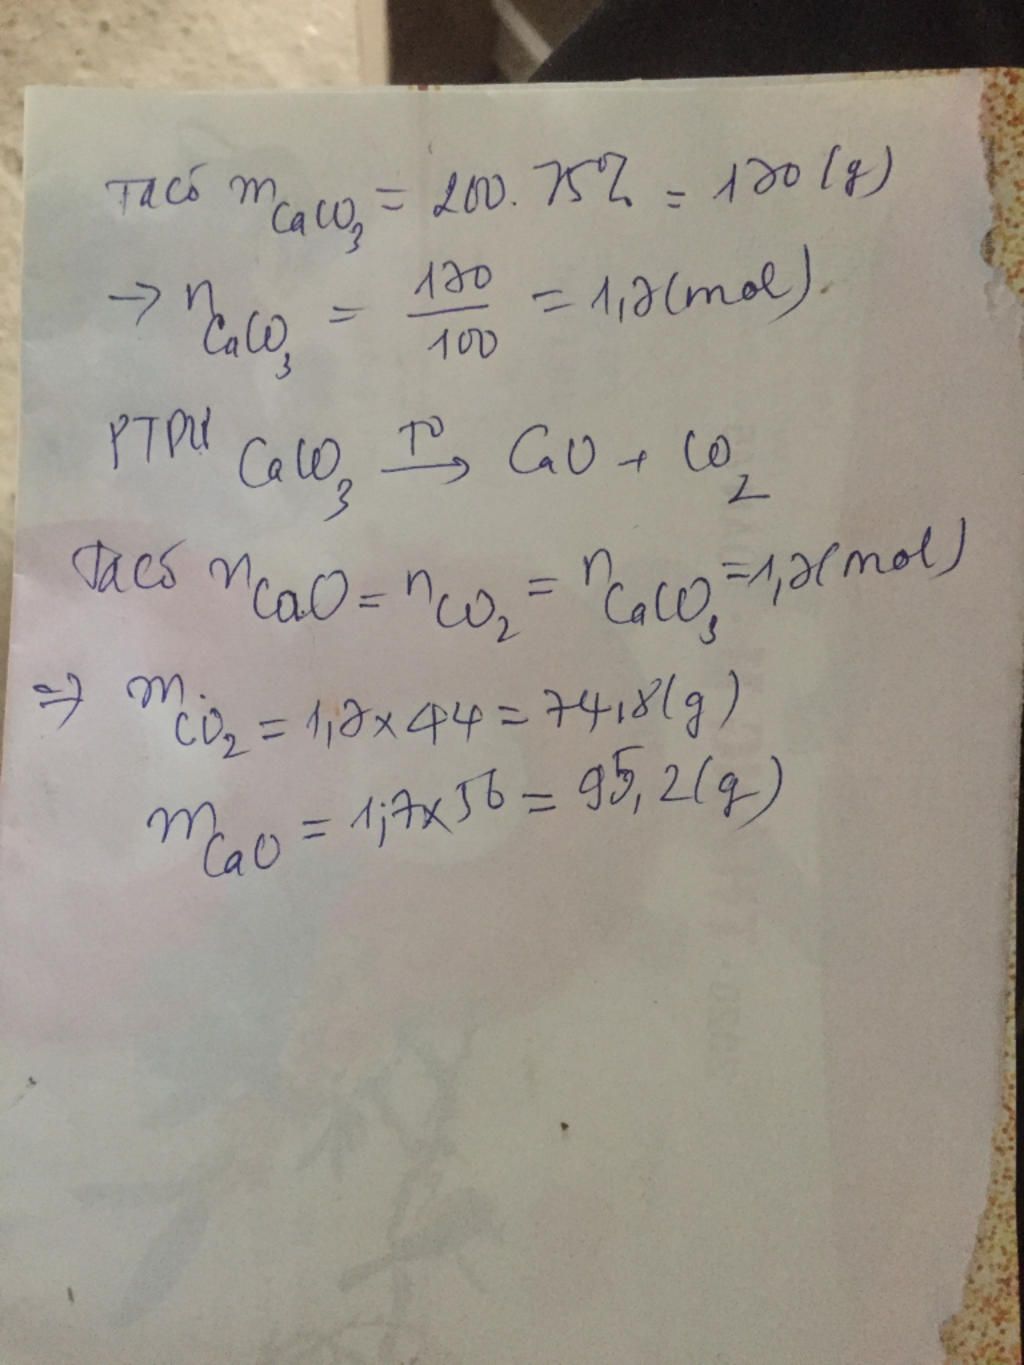 Ta có m CaCO₃ = 200. 85% = 170 (g)
→ n CaCO₃ = 170/100 = 1,7 (mol).
PTPƯ CaCO₃ →(T⁰) CaO + CO₂
Ta có n CaO = n CO₂ = n CaCO₃ = 1,7 (mol)
⇒ m CO₂ = 1,7 × 44 = 74,8 (g)
m CaO = 1,7 × 56 = 95,2 (g)